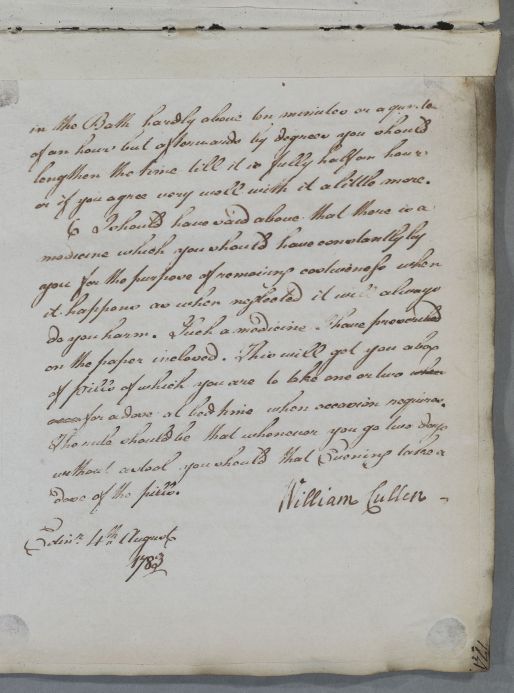 in the Bath hardly above ten minutes or a quarte
of an hour but afterwards by degrees you should
lengthen the time till it is fully half an hour
or if you agree very well with it a little more.
6 I should have said above that there is a
medicine which you should have constantly by
you for the purpose of removing costiveness when
it happens as when neglected it will always
do you harm. Such a medicine I have prescribed
on the paper inclosed. This will get you a box
of pills of which you are to take one or two
for a dose at bed time when occasion requires.
The rule should be that whenever you go two days
without a stool you should that Evening take a
dose of the pills.
William Cullen
Edinr. 4th August
1783